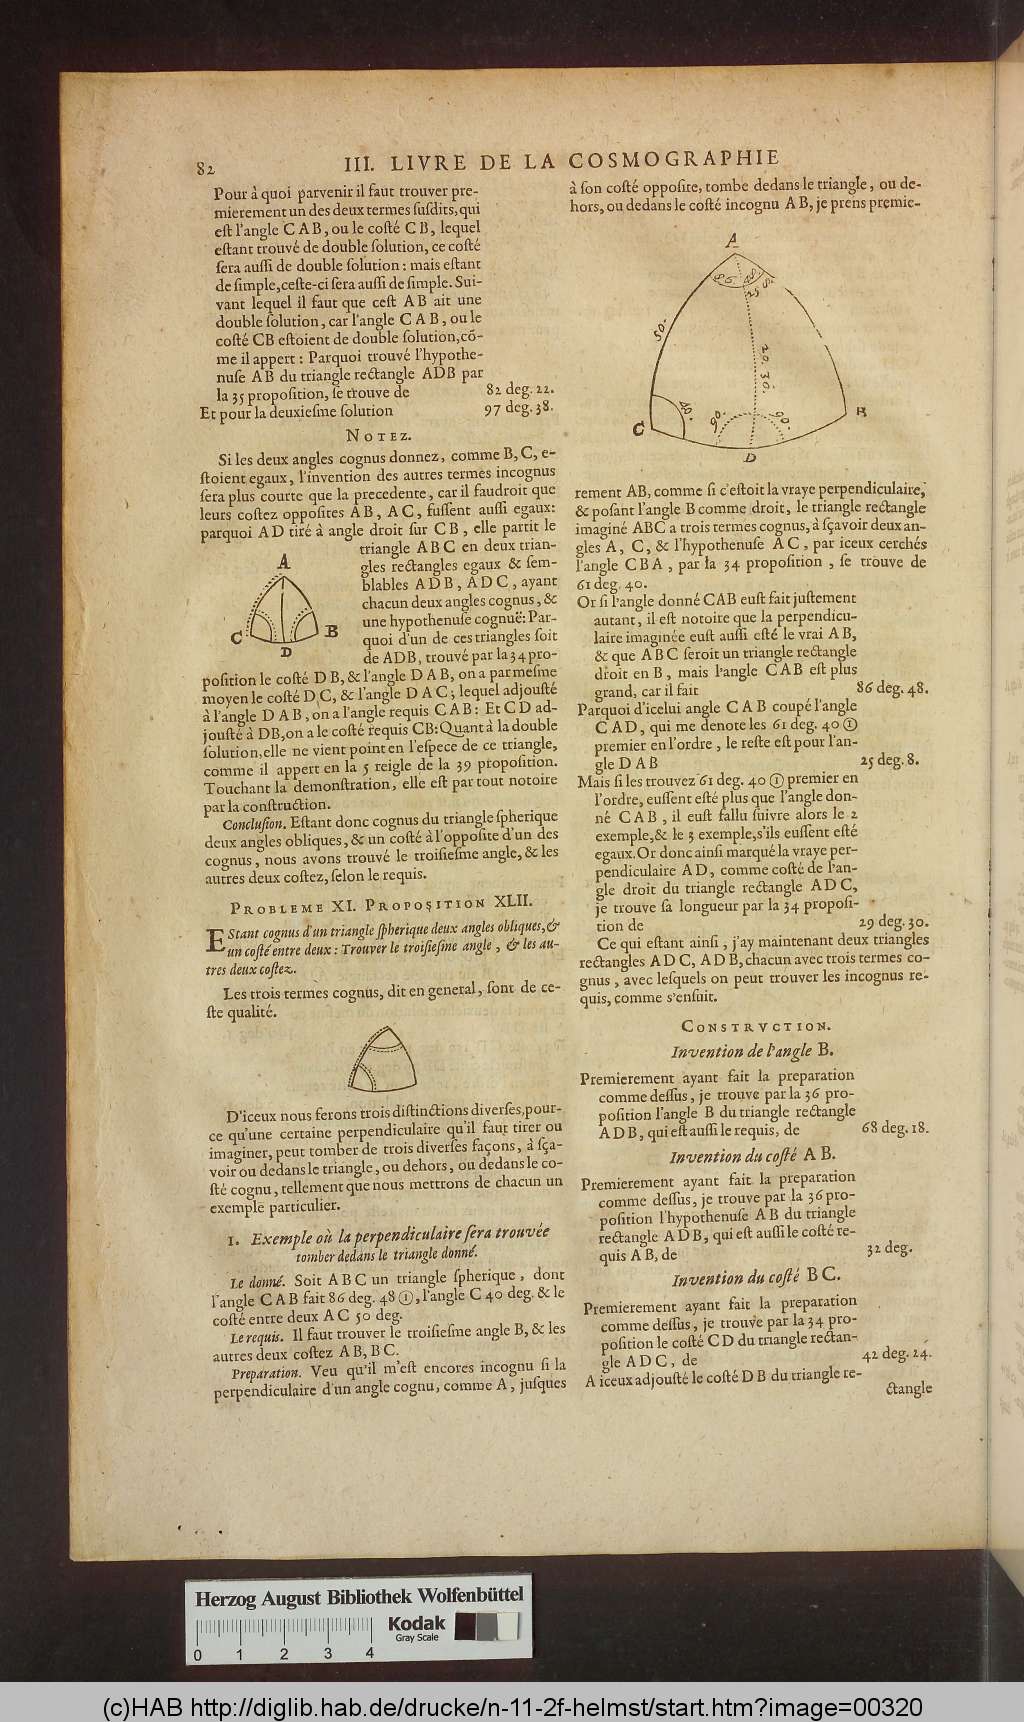 82
III. LIVRE DE LA COSMOGRAPHIE
Pour à quoi parvenir il faut trouver pre-
mierement un des deux termes ſuſdits, qui
eſt l'angle C A B, ou le coſté C B, lequel
eſtant trouvé de double ſolution, ce coſté
ſera auſſi de double ſolution: mais eſtant
de ſimple, ceſte-ci ſera auſſi de ſimple. Sui-
vant lequel il faut que ceſt A B ait une
double ſolution, car l'angle C A B, ou le
coſté CB eſtoient de double ſolution, cõ-
me il appert: Parquoi trouvé l'hypothe-
nuſe AB du triangle rectangle ADB par
la 35 propoſition, ſe trouve de 82 deg. 22.
Et pour la deuxieſme ſolution 97 deg. 38.
NOTEZ.
Si les deux angles cognus donnez, comme B, C, e-
ſtoient egaux, l'invention des autres termes incognus
ſera plus courte que la precedente, car il faudroit que
leurs coſtez oppoſites AB, AC, fuſſent auſſi egaux:
parquoi A D tiré à angle droit ſur C B, elle partit le
triangle A B C en deux trian-
gles rectangles egaux & ſem-
blables A D B, A D C, ayant
chacun deux angles cognus, &
une hypothenuſe cognuë: Par-
quoi d'un de ces triangles ſoit
de ADB, trouvé par la 34 pro-
A
C
B
D
poſition le coſté D B, & l'angle D A B, on a par meſme
moyen le coſté D C, & l'angle D A C; lequel adjouſté
à l'angle D A B, on a l'angle requis C A B: Et C D ad-
jouſté à DB, on a le coſté requis CB: Quant à la double
ſolution, elle ne vient point en l'eſpece de ce triangle,
comme il appert en la 5 reigle de la 39 propoſition.
Touchant la demonſtration, elle eſt par tout notoire
par la conſtruction.
Concluſion. Eſtant donc cognus du triangle ſpherique
deux angles obliques, & un coſté à l'oppoſite d'un des
cognus, nous avons trouvé le troiſieſme angle, & les
autres deux coſtez, ſelon le requis.
PROBLEME XI. PROPOSITION XLII.
EStant cognus d'un triangle ſpherique deux angles obliques, &
un coſté entre deux: Trouver le troiſieſme angle, & les au-
tres deux coſtez.
Les trois termes cognus, dit en general, ſont de ce-
ſte qualité.
D'iceux nous ferons trois diſtinctions diverſes, pour-
ce qu'une certaine perpendiculaire qu'il faut tirer ou
imaginer, peut tomber de trois diverſes façons, à ſça-
voir ou dedans le triangle, ou dehors, ou dedans le co-
ſté cognu, tellement que nous mettrons de chacun un
exemple particulier.
1. Exemple où la perpendiculaire ſera trouvée
tomber dedans le triangle donné.
Le donné. Soit A B C un triangle ſpherique, dont
l'angle C A B fait 86 deg. 48 ①, l'angle C 40 deg. & le
coſté entre deux A C 50 deg.
Le requis. Il faut trouver le troiſieſme angle B, & les
autres deux coſtez A B, B C.
Preparation. Veu qu'il m'eſt encores incognu ſi la
perpendiculaire d'un angle cognu, comme A, juſques
à ſon coſté oppoſite, tombe dedans le triangle, ou de-
hors, ou dedans le coſté incognu A B, je prens premie-
A
86. 48.
25 8.
50.
20. 30.
40.
90.
90.
C
B
D
rement AB, comme ſi c'eſtoit la vraye perpendiculaire,
& poſant l'angle B comme droit, le triangle rectangle
imaginé ABC a trois termes cognus, à ſçavoir deux an-
gles A, C, & l'hypothenuſe A C, par iceux cerchés
l'angle C B A, par la 34 propoſition, ſe trouve de
61 deg. 40.
Or ſi l'angle donné CAB euſt fait juſtement
autant, il eſt notoire que la perpendicu-
laire imaginée euſt auſſi eſté le vrai A B,
& que A B C ſeroit un triangle rectangle
droit en B, mais l'angle C A B eſt plus
grand, car il fait 86 deg. 48.
Parquoi d'icelui angle C A B coupé l'angle
C A D, qui me denote les 61 deg. 40 ①
premier en l'ordre, le reſte eſt pour l'an-
gle D A B 25 deg. 8.
Mais ſi les trouvez 61 deg. 40 ① premier en
l'ordre, euſſent eſté plus que l'angle don-
né C A B, il euſt fallu ſuivre alors le 2
exemple, & le 3 exemple, s'ils euſſent eſté
egaux. Or donc ainſi marqué la vraye per-
pendiculaire A D, comme coſté de l'an-
gle droit du triangle rectangle A D C,
je trouve ſa longueur par la 34 propoſi-
tion de 29 deg. 30.
Ce qui eſtant ainſi, j'ay maintenant deux triangles
rectangles A D C, A D B, chacun avec trois termes co-
gnus, avec leſquels on peut trouver les incognus re-
quis, comme s'enſuit.
CONSTRVCTION.
Invention de l'angle B.
Premierement ayant fait la preparation
comme deſſus, je trouve par la 36 pro-
poſition l'angle B du triangle rectangle
A D B, qui eſt auſſi le requis, de 68 deg. 18.
Invention du coſté A B.
Premierement ayant fait la preparation
comme deſſus, je trouve par la 36 pro-
poſition l'hypothenuſe A B du triangle
rectangle A D B, qui eſt auſſi le coſté re-
quis A B, de 32 deg.
Invention du coſté B C.
Premierement ayant fait la preparation
comme deſſus, je trouve par la 34 pro-
poſition le coſté C D du triangle rectan-
gle A D C, de 42 deg. 24.
A iceux adjouſté le coſté D B du triangle re-
ctangle
Herzog August Bibliothek Wolfenbüttel
Kodak
Gray Scale
0 1 2 3 4
(c)HAB http://diglib.hab.de/drucke/n-11-2f-helmst/start.htm?image=00320